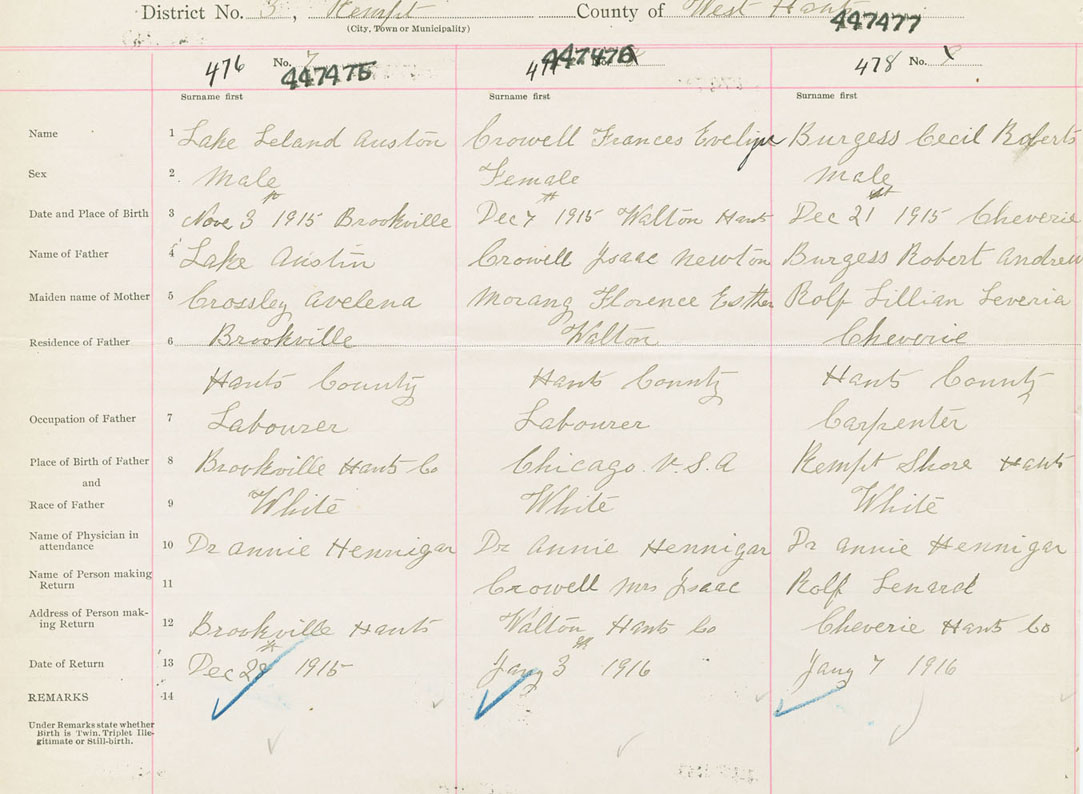 District No. 3, Kempt County of West Hants
(City, Town or Municipality)
447477
476 No. 7 447475 477 447476 No. 478 No.
Surname first Surname first Surname first
Name 1 Lake Leland Auston Crowell Frances Evelyn Burgess Cecil Roberts
Sex 2 Male Female Male
Date and Place of Birth 3 Nove 3 1915 Brookville Dec 7th 1915 Walton Hants Dec 21st 1915 Cheverie
Name of Father 4 Lake Austin Crowell Isaac Newton Burgess Robert Andrew
Maiden name of Mother 5 Crossley Avelena Morang Florence Esther Rolf Lillian Leveria
Residence of Father 6 Brookville Walton Cheverie
Hants County Hants County Hants County
Occupation of Father 7 Labourer Labourer Carpenter
Place of Birth of Father 8 Brookville Hants Co Chicago U.S.A Kempt Shore Hants
and
Race of Father 9 White White White
Name of Physician in
attendance 10 Dr Annie Hennigar Dr Annie Hennigar Dr Annie Hennigar
Name of Person making
Return 11 Crowell Mrs Isaac Rolf Lenard
Address of Person mak-
ing Return 12 Brookville Hants Walton Hants Co Cheverie Hants Co
Date of Return 13 Dec 1915 Jany 3 1916 Jany 7 1916
REMARKS 14
Under Remarks state whether
Birth is Twin. Triplet Ille-
gitimate or Still-birth.